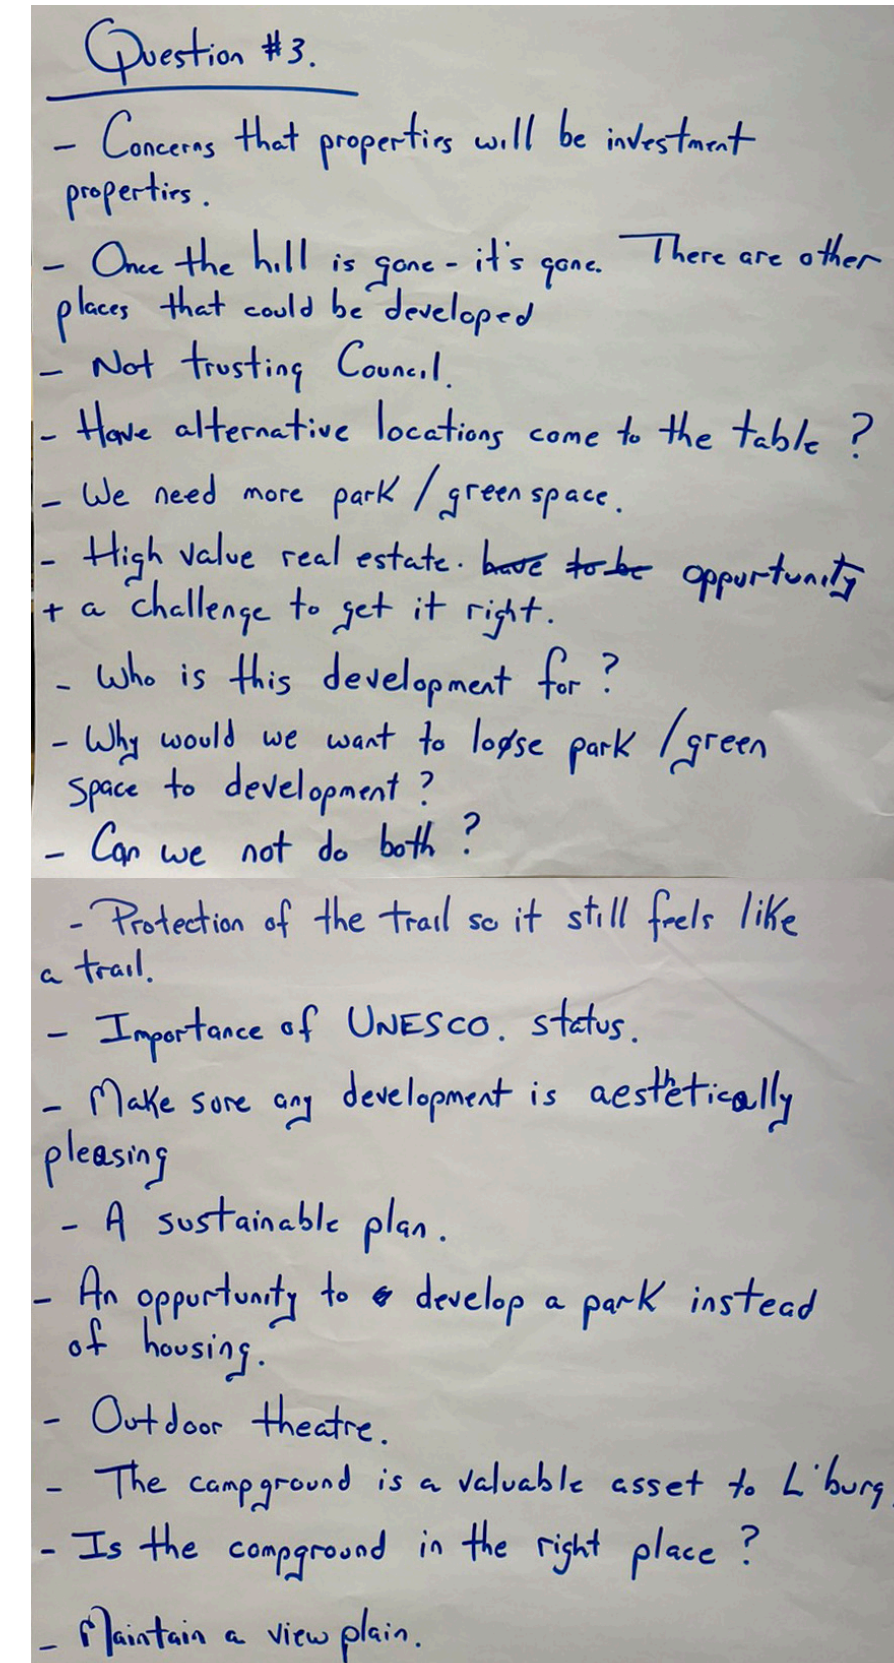 Question #3.
- Concerns that properties will be investment
properties.
- Once the hill is gone - it's gone. There are other
places that could be developed
- Not trusting Council.
- Have alternative locations come to the table ?
- We need more park / green space.
- High value real estate. have to be oppurtunity
+ a challenge to get it right.
- Who is this development for ?
- Why would we want to loose park / green
space to development ?
- Can we not do both ?
- Protection of the trail so it still feels like
a trail.
- Importance of UNESCO. status.
- Make sure any development is aesthetically
pleasing
- A sustainable plan.
- An oppurtunity to develop a park instead
of housing.
- Outdoor theatre.
- The campground is a valuable asset to L'burg.
- Is the campground in the right place ?
- Maintain a view plain.